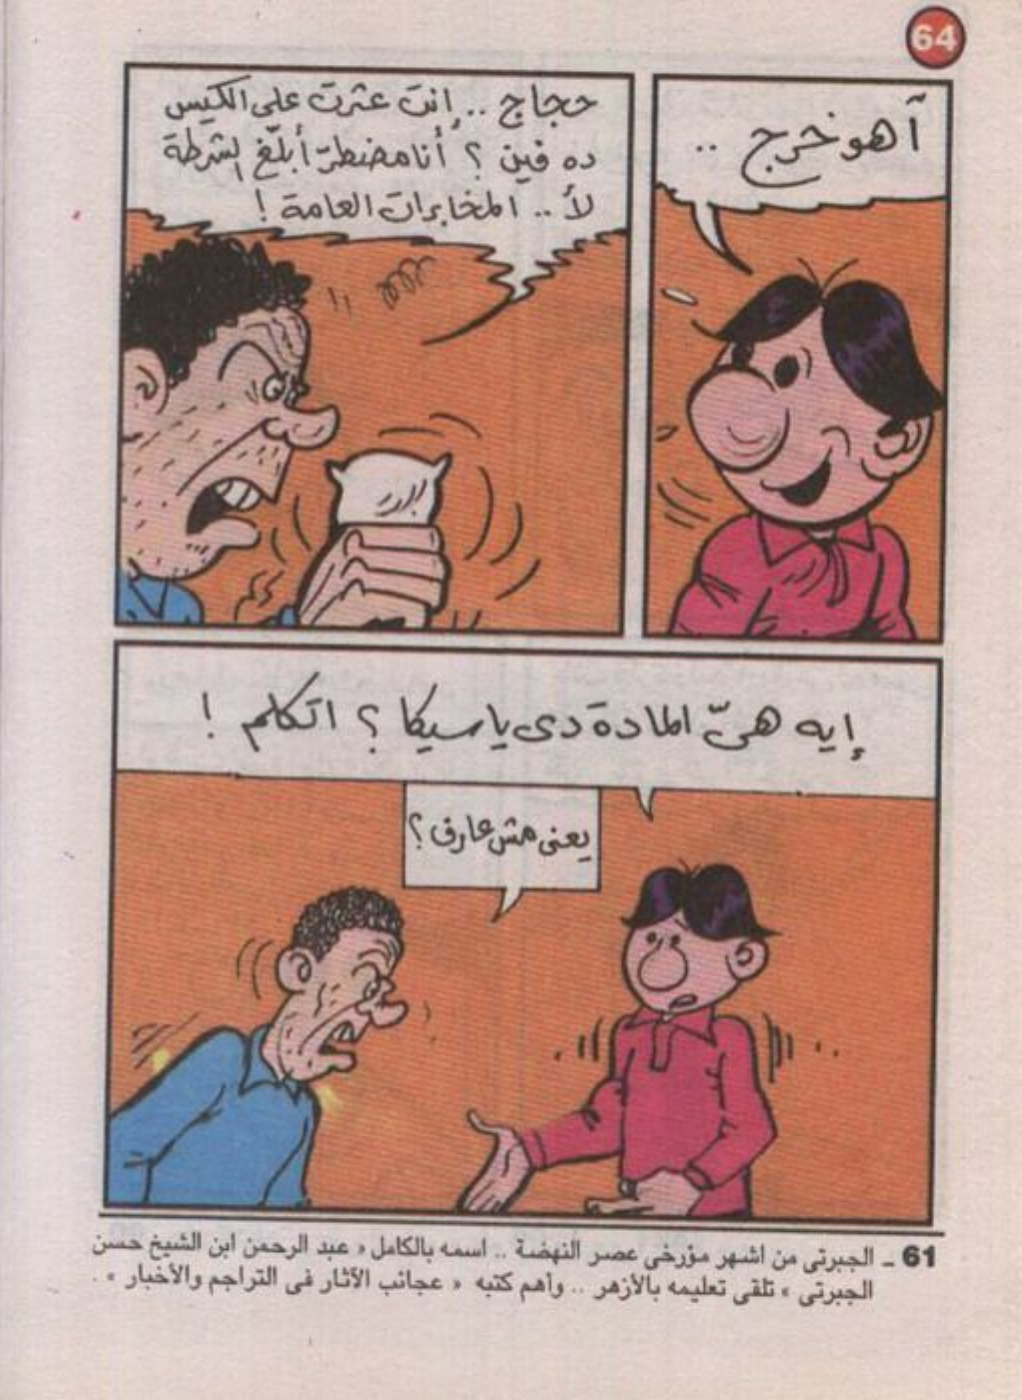 64
آهو خرج ..
حجاج .. إنت عثرت على الكيس
ده فين ؟ أنا مضطرّ أبلّغ الشرطة
لأ .. المخابرات العامة !
إيه هىّ المادة دى يا سيكا ؟ اتكلم !
يعنى مش عارف ؟
61 ـ الجبرتى من اشهر مؤرخى عصر النهضة .. اسمه بالكامل « عبد الرحمن ابن الشيخ حسن
الجبرتى » تلقى تعليمه بالأزهر .. وأهم كتبه « عجائب الآثار فى التراجم والأخبار » .